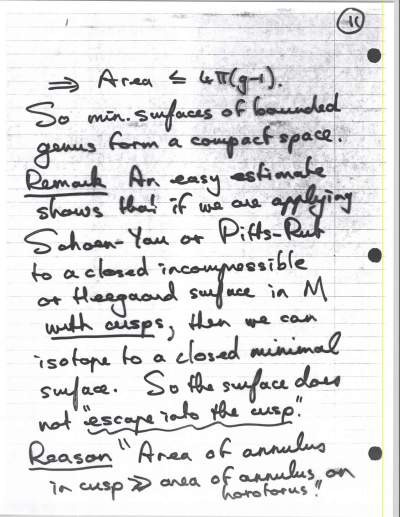 11
⇒ Area ≤ 4π(g-1).
So min. surfaces of bounded
genus form a compact space.
Remark An easy estimate
shows that if we are applying
Schoen-Yau or Pitts-Rub
to a closed incompressible
or Heegaard surface in M
with cusps, then we can
isotope to a closed minimal
surface. So the surface does
not "escape into the cusp."
Reason "Area of annulus
in cusp ≫ area of annulus on
horotorus."